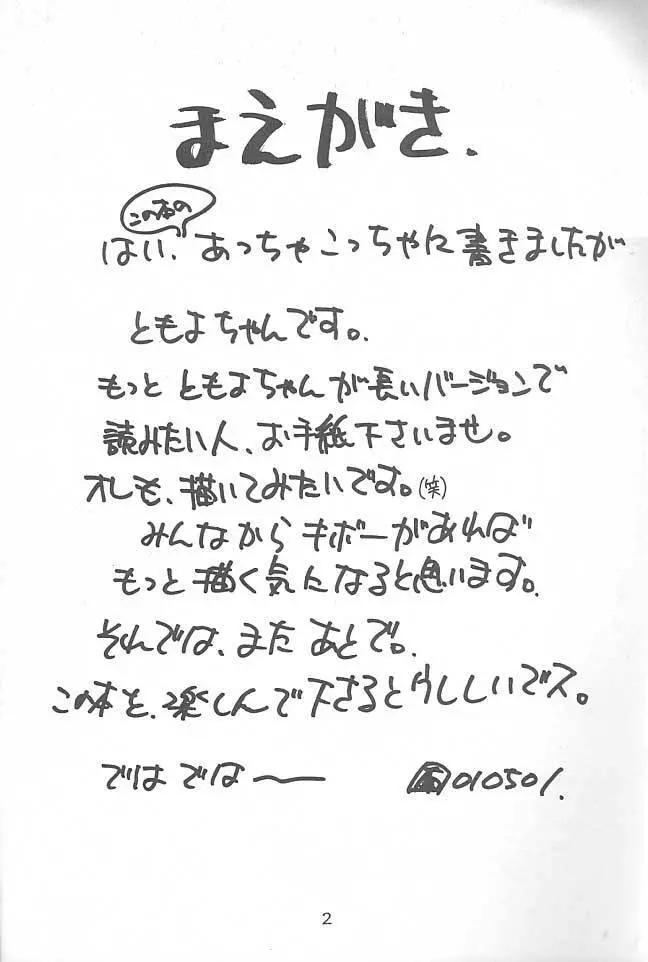 まえがき.
この本の
はい、あっちゃこっちゃに書きましたが
ともよちゃんです。
もっと ともよちゃんが長いバージョンで
読みたい人、お手紙下さいませ。
オレも、描いてみたいです。(笑)
みんなから キボーがあれば
もっと描く気になると思います。
それでは、また あとで。
この本を、楽しんで下さるとウレしいでス。
では では〜 010501.
2